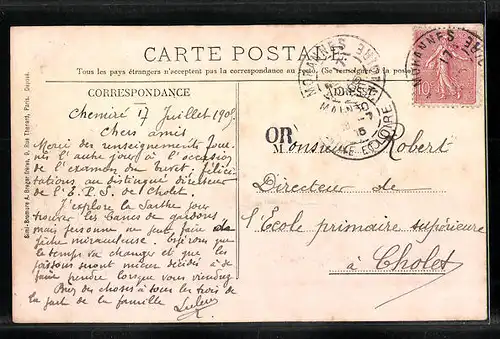 CARTE POSTALE
Tous les pays étrangers n'acceptent pas la correspondance au (Se renseigner à la poste)
CORRESPONDANCE
Chemiré 17 Juillet 190
Chers amis
Merci des renseignements four-
nis l'autre jour à l'occasion
de l'examen du brevet. félici
tations au distingué directeur
de l'E.P.S. de Cholet.
J'explore la Sarthe pour
trouver les bancs de gardons
mais personne ne peut faire de
pêche miraculeuse. Espérons que
le temps va changer et que les
poissons seront mieux décidés à se
faire prendre lorsque vous viendrez
Bien des choses à tous les trois de
la part de la famille
MORANNES
MORANNES
MAINE ET LOIRE
OR
10
Monsieur Robert
Directeur de
l'Ecole primaire supérieure
à Cholet